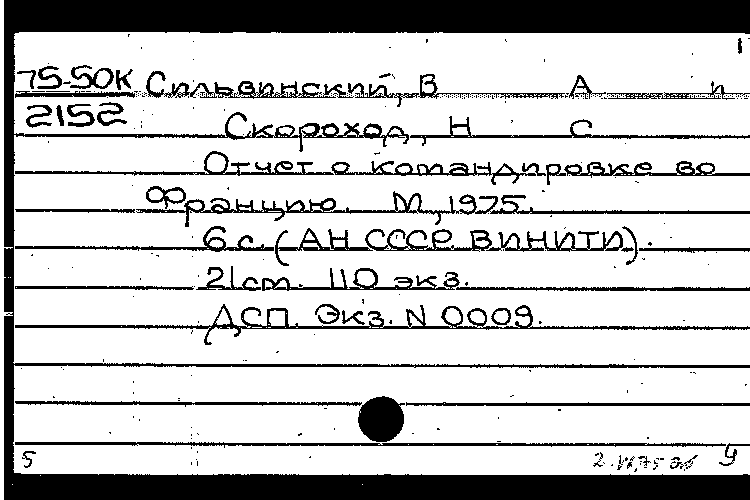 1
75-50К Сильвинский, В А и
2152
Скороход, Н С
Отчет о командировке во
Францию. М, 1975.
6 с. (АН СССР. ВИНИТИ).
21 ст. 110 экз.
ДСП. Экз. N 0009.
5 2.VII,75 У